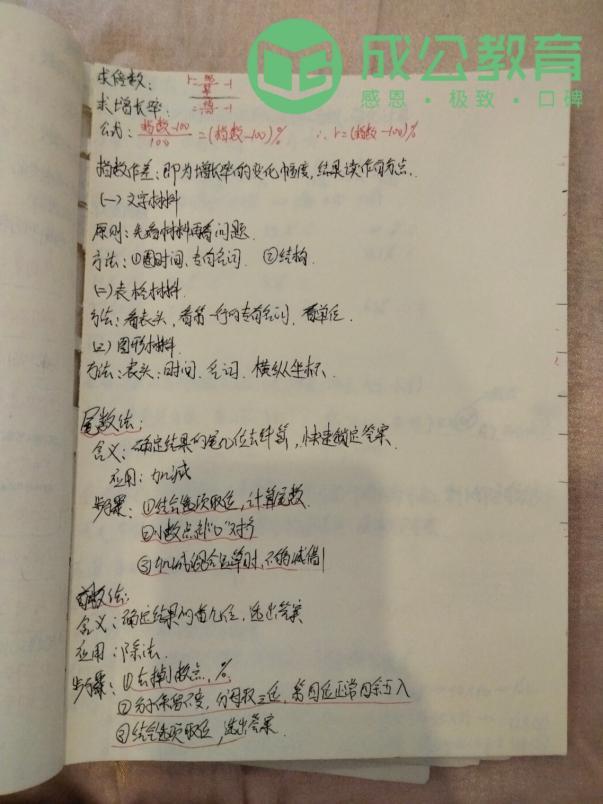 成公教育
感恩·极致·口碑
求倍数：
求增长率：
公式：指数-100/100=(指数-100)% ∴ r=(指数-100)%
指数作差：即为增长率的变化幅度，结果读作百分点．
(一)文字材料
原则：先看材料再看问题．
方法：①圈时间、专有名词．②结构．
(二)表格材料．
方法：看表头，看第一行内专有名词，看单位．
(三)图形材料．
方法：表头：时间、名词．横纵坐标．
尾数法：
含义：确定结果的尾几位去计算，快速锁定答案．
应用：加减
步骤：①结合选项取位，计算尾数．
②小数点部"0"对齐
③加减混合运算时，不够减借1
首数法：
含义：确定结果的首几位，选出答案
应用：除法．
步骤：①去掉小数点，%
②分子保留不变，分母取三位，第四位正常四舍五入
③结合选项取位，选出答案．